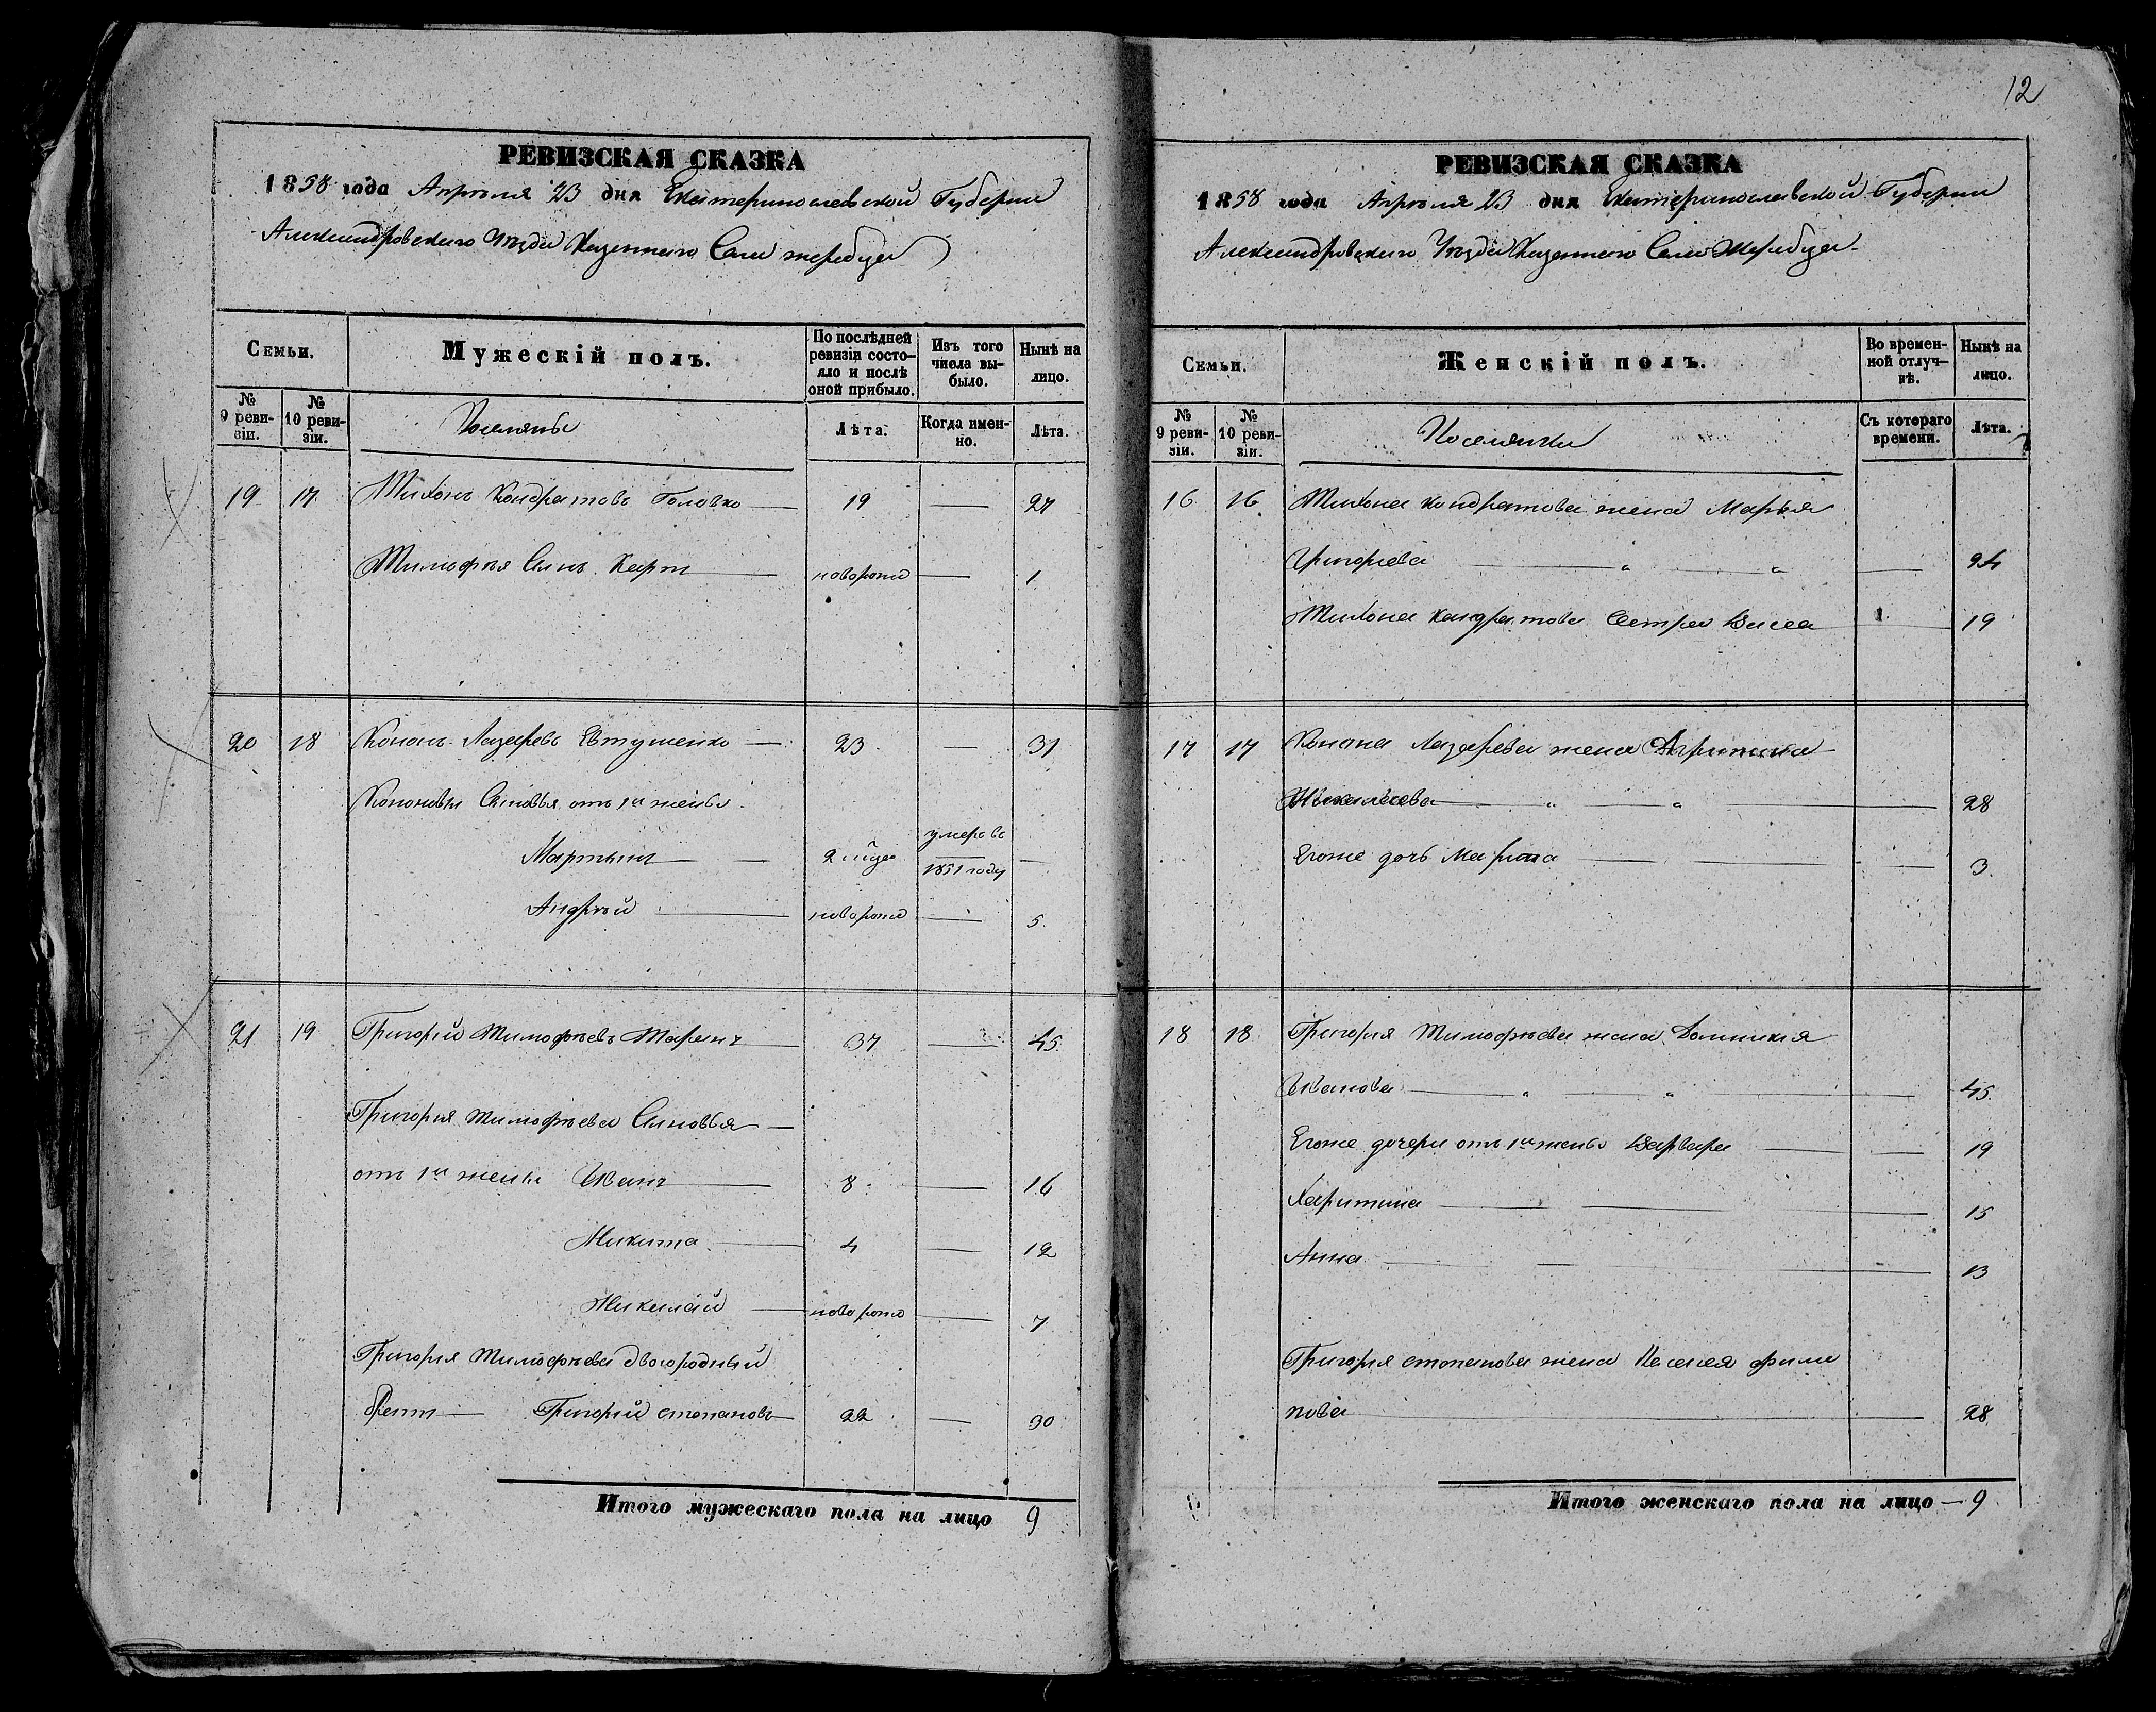 12
РЕВИЗСКАЯ СКАЗКА
1858 года Апрѣля 23 дня Екатеринославской Губерни
Александровскаго Уѣзда Казеннаго Села жеребца
Семьи.
Мужескій полъ.
По послѣдней ревизіи состояло и послѣ оной прибыло.
Изъ того числа выбыло.
Нынѣ на лицо.
№ 9 ревизіи.
№ 10 ревизіи.
Поселяны
Лѣта.
Когда именно.
Лѣта.
19 17 Тихонъ Кондратовъ Головко 19 — 27
Тимофѣя Сынъ Карпъ новорож — 1
20 18 Кононъ Лазаревъ Евтушенко 23 — 31
Кононовы Сыновья отъ 1й жены
Мартынъ умеръ въ 1851 году —
Андрѣй новорож — 5.
21 19 Григорій Тимофѣевъ Таранъ 37 — 45.
Григорія Тимофѣева Сыновья
отъ 1й жены Иванъ 8 — 16
Микита 4 — 12
Никилай новорож — 7
Григорія Тимофѣева двоюродный
братъ Григорій степановъ 22 — 30
Итого мужескаго пола на лицо 9
РЕВИЗСКАЯ СКАЗКА
1858 года Апрѣля 23 дня Екатеринославской Губерни
Александровскаго Уѣзда Казеннаго Села Жеребца
Семьи.
Женскій полъ.
Во временной отлучкѣ.
Нынѣ на лицо.
№ 9 ревизіи.
№ 10 ревизіи.
Поселянки
Съ котораго времени.
Лѣта.
16 16 Тихона кондратова жена Марья
Григорьева " " — 24
Тихона кандратова Сестра Васса — 19
17 17 Конона Лазарева жена Агрипина
" " — 28
Егоже дочь Марина — 3.
18 18 Григорія Тимофѣева жена Домникія
Иванова " " — 45.
Егоже дочери отъ 1й жены Варвара — 19
Харитина — 15
Анна — 13
Григорія степанова жена Пелагея фили
пова — 28
Итого женскаго пола на лицо — 9